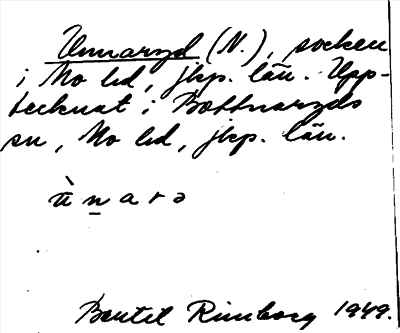 Unnaryd (N.), socken
i Mo hd, jkp. län. Upp-
tecknat i Bottnaryds
sn, Mo hd, jkp. län.
ù n̲ a r ə
Bertil Rimborg 1949.